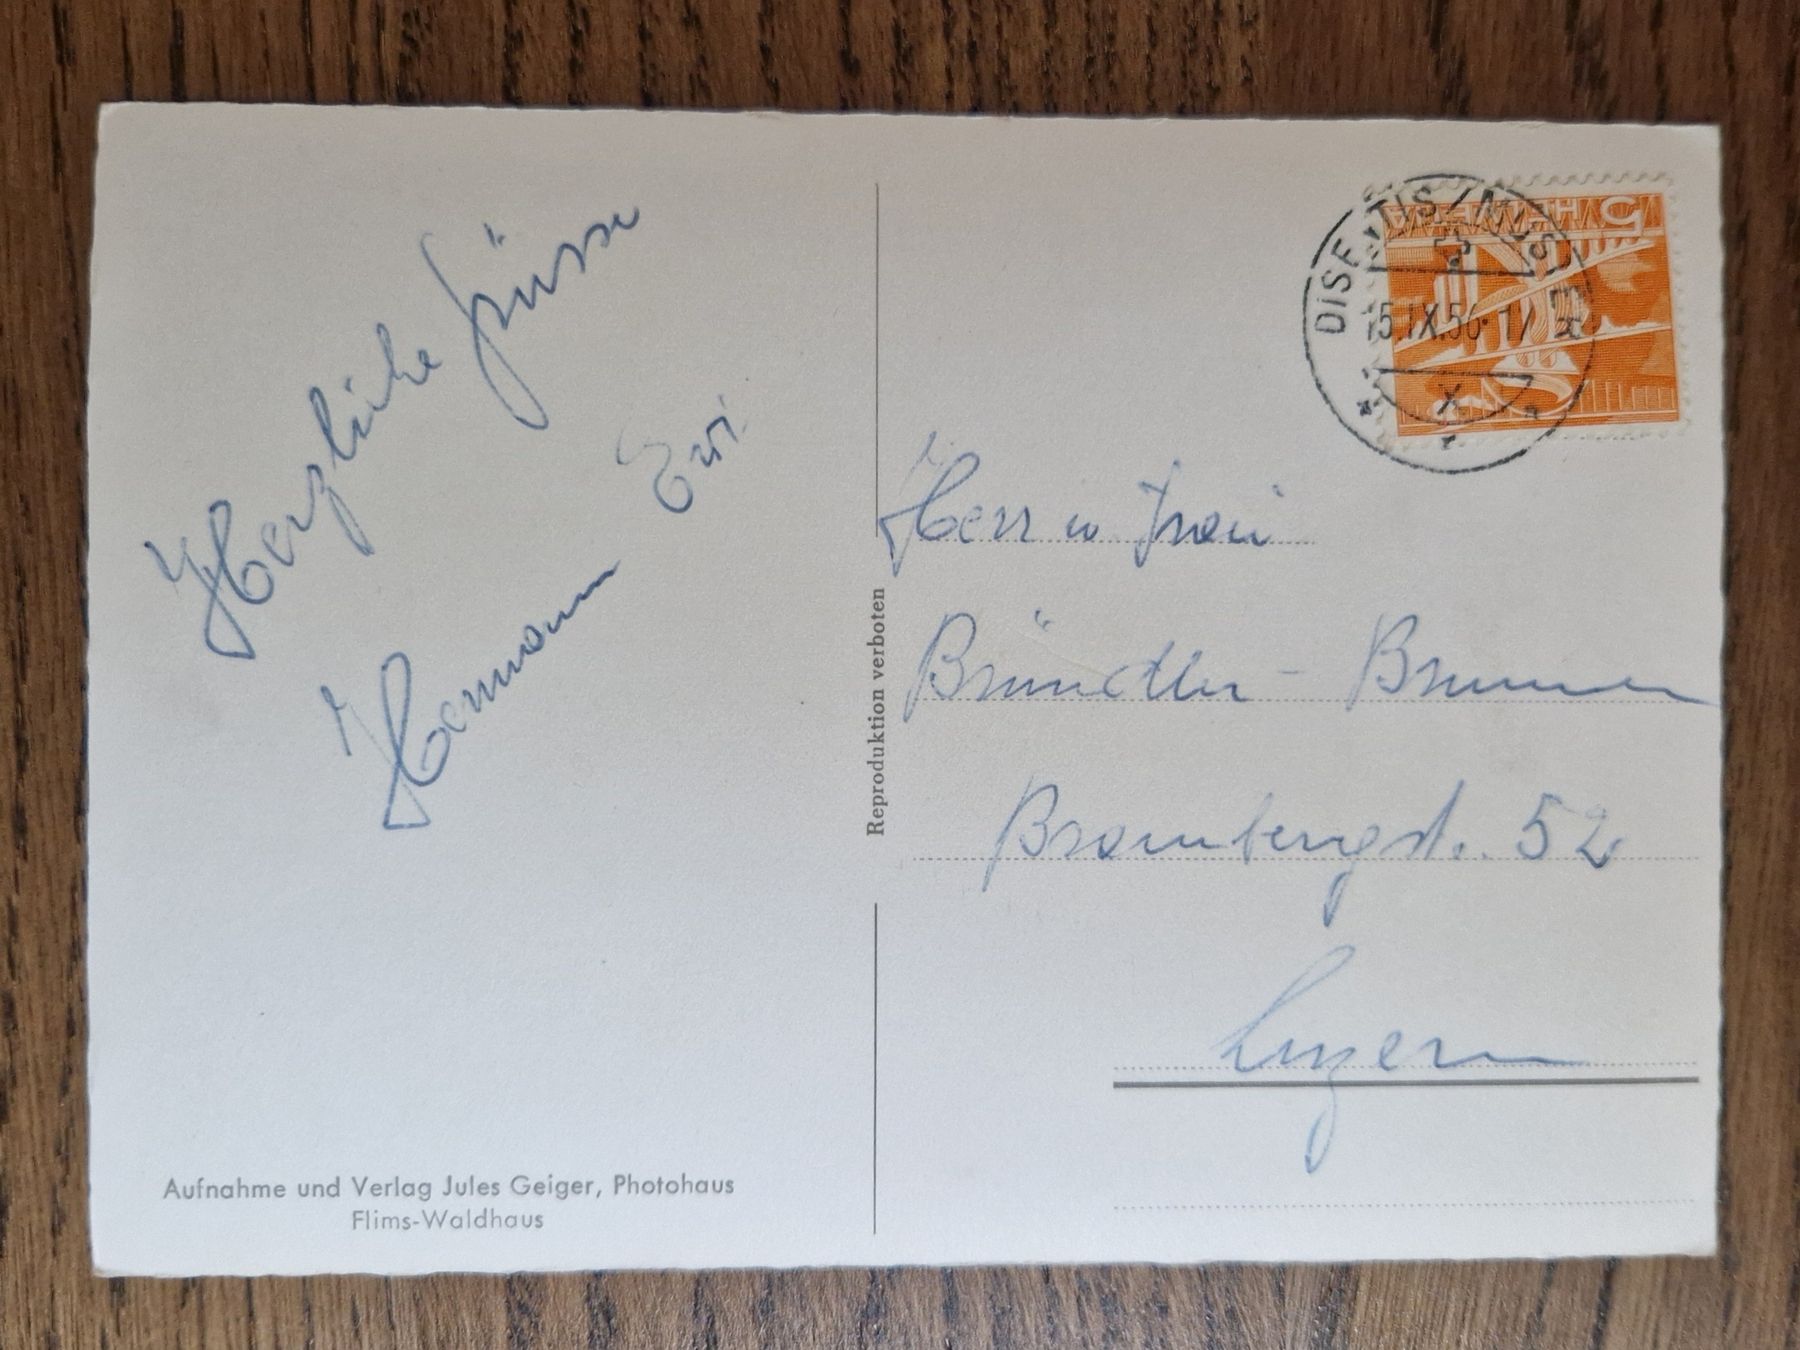 Herzliche Grüsse
Hermann Evi.
5 HELVETIA
DISENTIS/MUSTER
5.IX.56·17
Herr u Frau
Bründler-Brunner
Brambergstr. 52
Luzern
Reproduktion verboten
Aufnahme und Verlag Jules Geiger, Photohaus
Flims-Waldhaus